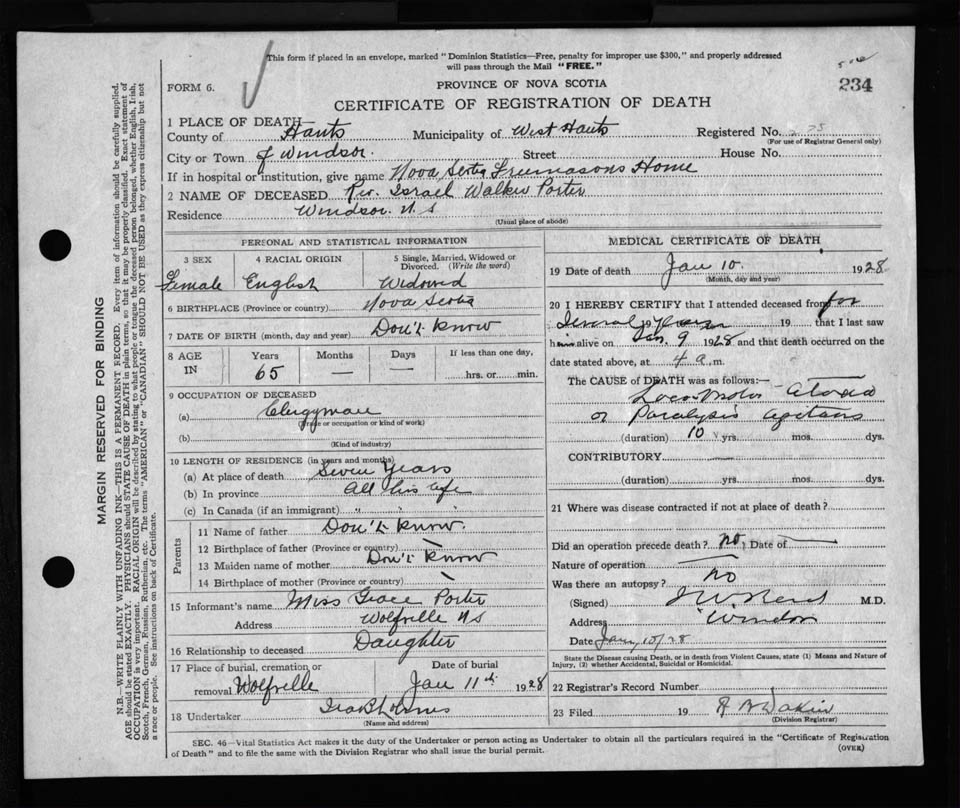 This form if placed in an envelope, marked "Dominion Statistics—Free, penalty for improper use $300," and properly addressed
will pass through the Mail "FREE."
FORM 6.
PROVINCE OF NOVA SCOTIA
234
CERTIFICATE OF REGISTRATION OF DEATH
1 PLACE OF DEATH—
County of Hants Municipality of West Hants Registered No.
(For use of Registrar General only)
City or Town of Windsor. Street House No.
If in hospital or institution, give name Nova Scotia Freemasons Home
2 NAME OF DECEASED Rev. Israel Walker Porter
Residence Windsor. N.S
(Usual place of abode)
PERSONAL AND STATISTICAL INFORMATION
3 SEX 4 RACIAL ORIGIN 5 Single, Married, Widowed or
Divorced. (Write the word)
Female English Widowed
6 BIRTHPLACE (Province or country) Nova Scotia
7 DATE OF BIRTH (month, day and year) Don't know
8 AGE Years Months Days If less than one day,
IN 65 — — hrs. or min.
9 OCCUPATION OF DECEASED
(a) Clergyman
(Trade or occupation or kind of work)
(b)
(Kind of industry)
10 LENGTH OF RESIDENCE (in years and months)
(a) At place of death Seven Years
(b) In province All his life
(c) In Canada (if an immigrant) " " "
Parents
11 Name of father Don't know.
12 Birthplace of father (Province or country)
13 Maiden name of mother Don't know
14 Birthplace of mother (Province or country)
15 Informant's name Miss Grace Porter
Address Wolfville N.S
16 Relationship to deceased Daughter
17 Place of burial, cremation or Date of burial
removal Wolfville Jan 11th 1928
18 Undertaker
(Name and address)
MEDICAL CERTIFICATE OF DEATH
19 Date of death Jan 10. 1928
(Month, day and year)
20 I HEREBY CERTIFY that I attended deceased from for
Several years 19 that I last saw
him alive on Jan. 9 1928 and that death occurred on the
date stated above, at 4 a. m.
The CAUSE of DEATH was as follows:—
Locomotor Ataxia
or Paralysis agitans
(duration) 10 yrs. mos. dys.
CONTRIBUTORY
(duration) yrs. mos. dys.
21 Where was disease contracted if not at place of death?
Did an operation precede death? no Date of —
Nature of operation —
Was there an autopsy? no
(Signed) M.D.
Address Windsor
Date Jan, 10/28
State the Disease causing Death, or in death from Violent Causes, state (1) Means and Nature of
Injury, (2) whether Accidental, Suicidal or Homicidal.
22 Registrar's Record Number
23 Filed 19
(Division Registrar)
SEC. 46—Vital Statistics Act makes it the duty of the Undertaker or person acting as Undertaker to obtain all the particulars required in the "Certificate of Registration
of Death" and to file the same with the Division Registrar who shall issue the burial permit. (OVER)
MARGIN RESERVED FOR BINDING
N.B.—WRITE PLAINLY WITH UNFADING INK—THIS IS A PERMANENT RECORD. Every item of information should be carefully supplied.
AGE should be stated EXACTLY. PHYSICIANS should STATE CAUSE OF DEATH in plain terms, so that it may be properly classified. Exact statement of
OCCUPATION is very important. RACIAL ORIGIN will be described by stating to what people or tongue the deceased person belonged, whether English, Irish,
Scotch, French, German, Russian, Ruthenian, etc. The terms "AMERICAN" or "CANADIAN" SHOULD NOT BE USED as they express citizenship but not
a race or people. See instructions on back of Certificate.